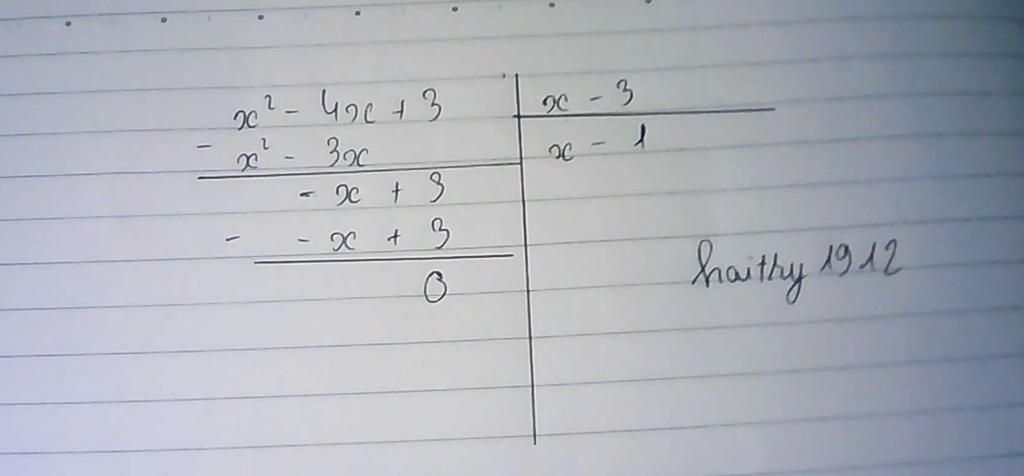 x² - 4x + 3 | x - 3
- x² - 3x | x - 1
- x + 3
- - x + 3
0
haithy 1912